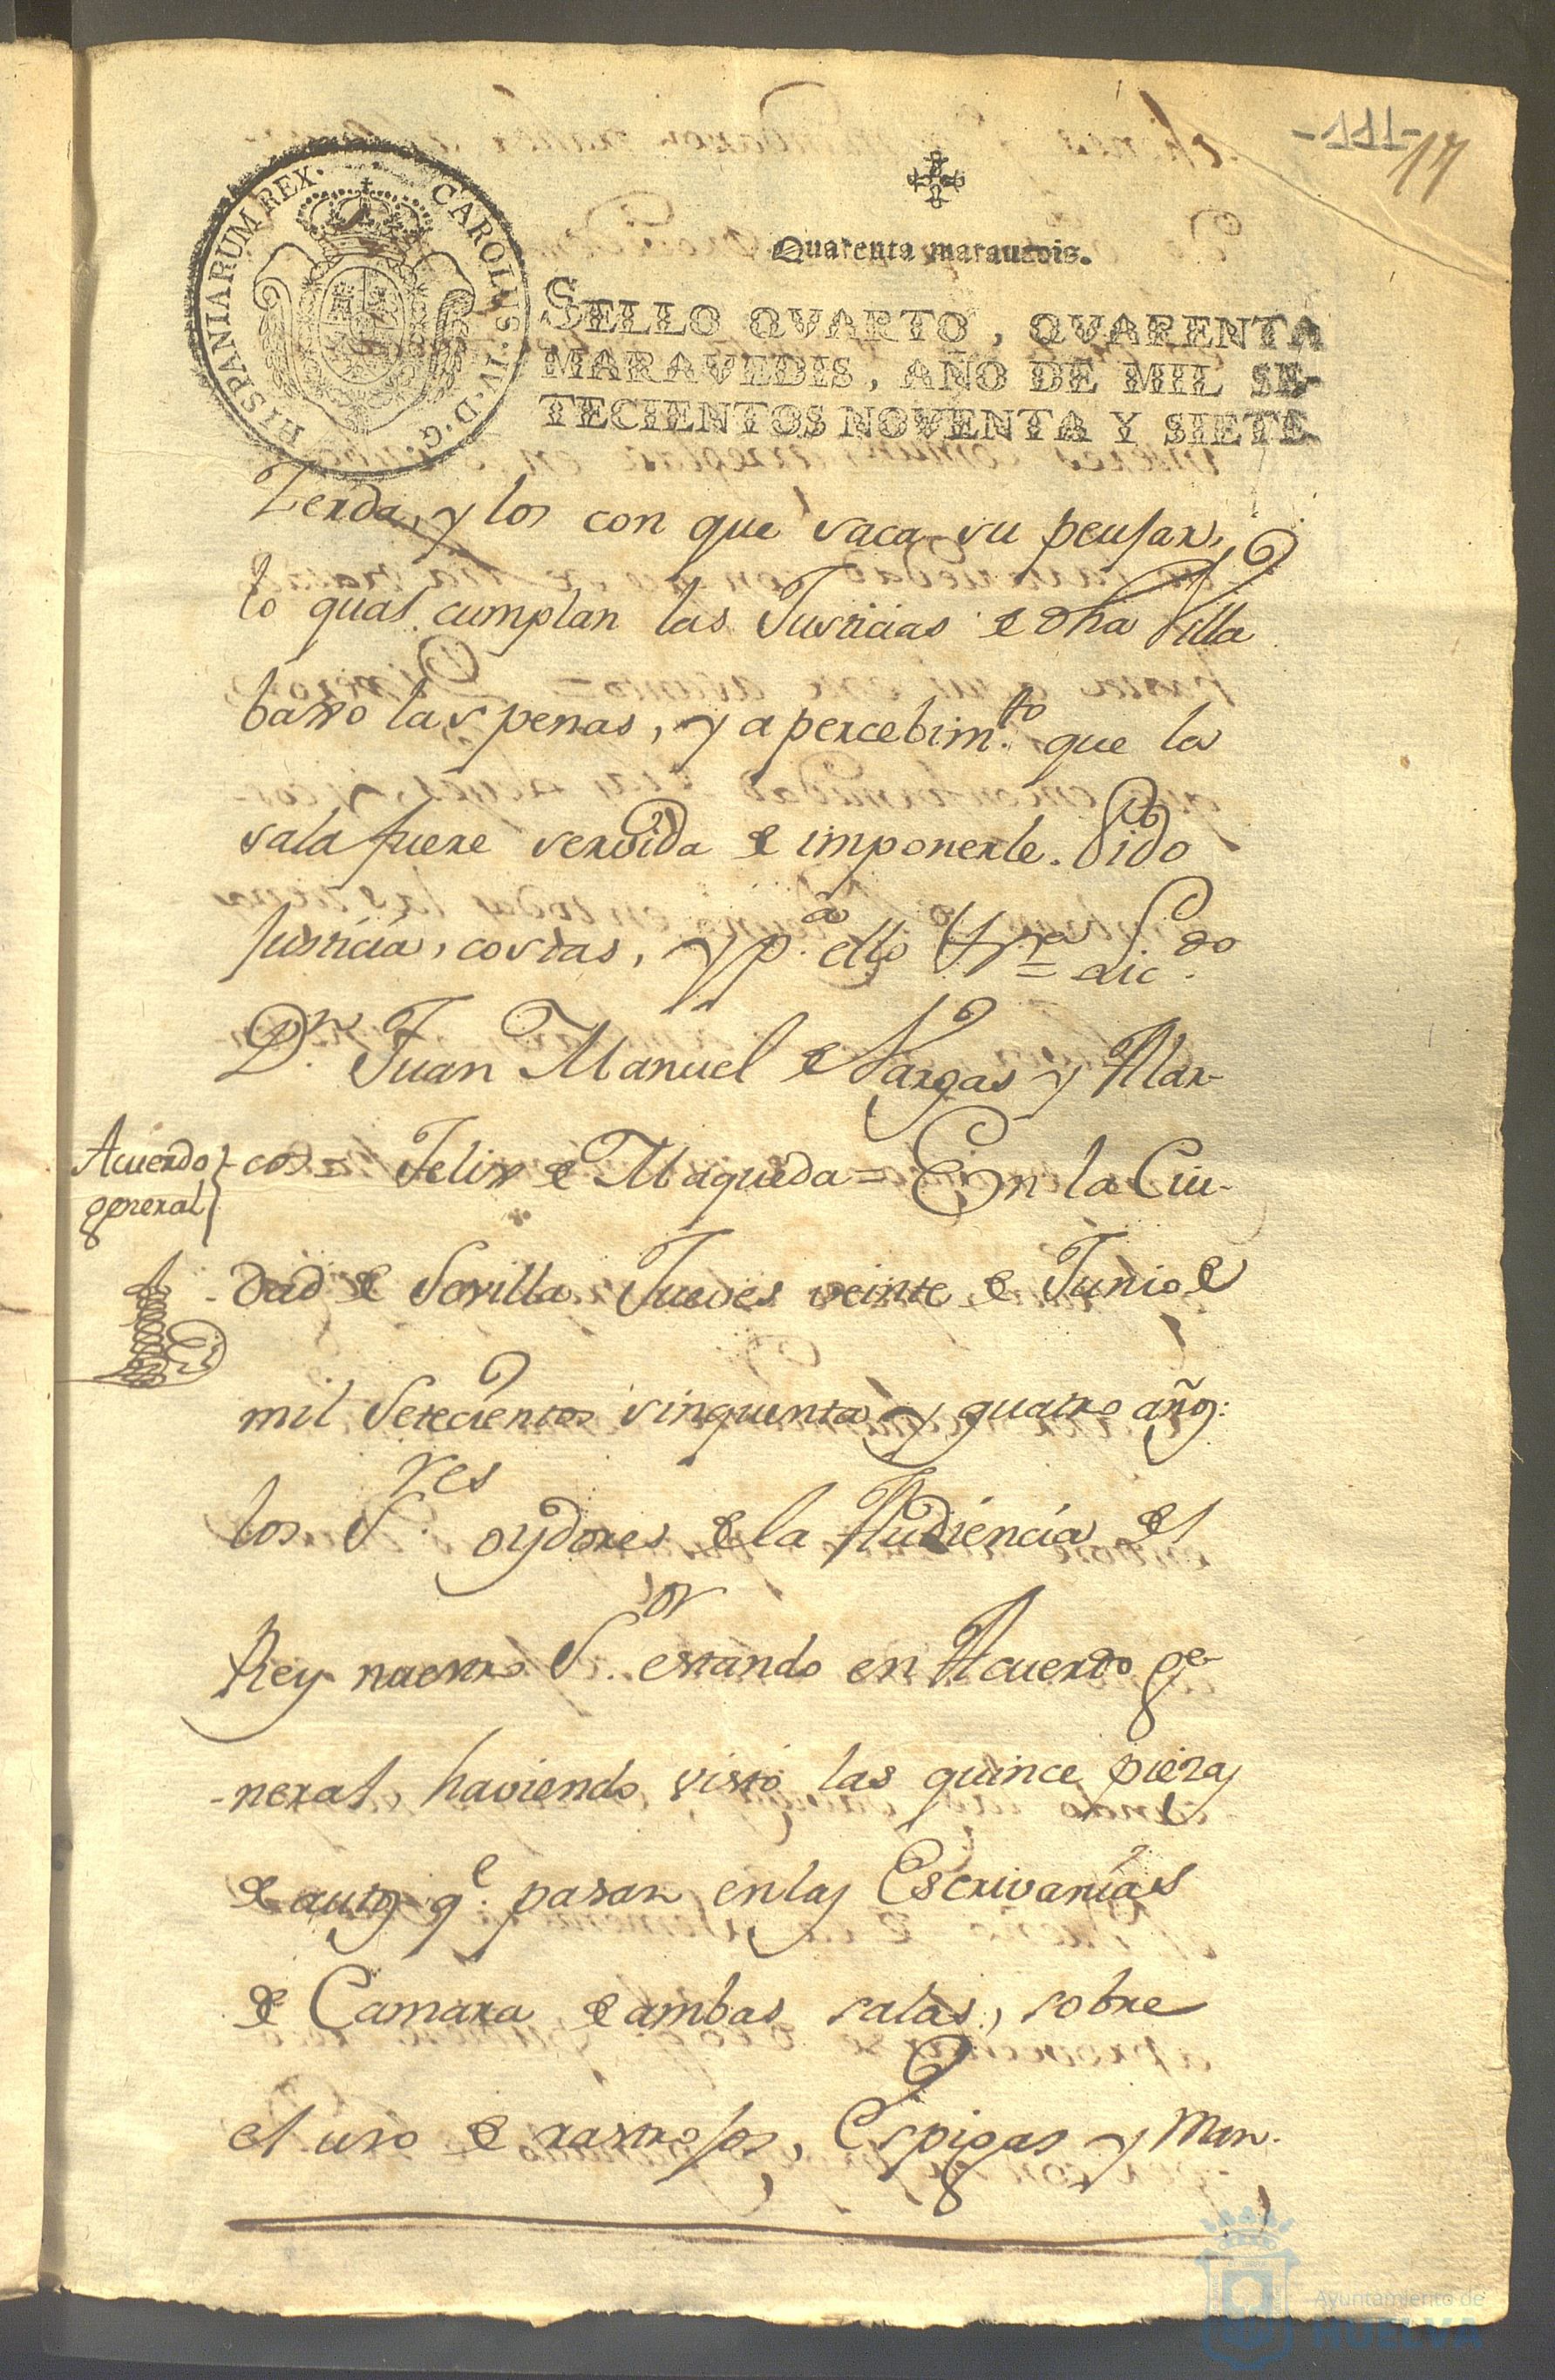 -111-
17
HISPANIARUM REX. CAROLUS. IV. D. G.
Quarenta marauedis.
SELLO QVARTO, QVARENTA
MARAVEDIS, AÑO DE MIL SE-
TECIENTOS NOVENTA Y SIETE
Zerda, y los con que saca su
lo qual cumplan las Justicias de dha Villa
baxo las penas, y apercebim.to que la
sala fuere servida de imponerle. Pido
Justicia, costas, y p.a ello &ra = Lic.do
D.n Juan Manuel de Vargas y Mar-
Acuerdo
general
-cos = Felix de Maqueda = En la Ciu-
-dad de Sevilla Jueves veinte de Junio de
mil Setecientos sinquenta y quatro añs:
los S.res oydores de la Audiencia del
Rey nuestro S.or estando en Acuerdo ge-
-neral, haviendo visto las quince piezas
de autos q.e pasan en las Escrivanias
de Camara de ambas salas, sobre
el uso de rastrojos, Espigas y Man-
Ayuntamiento de
HUELVA